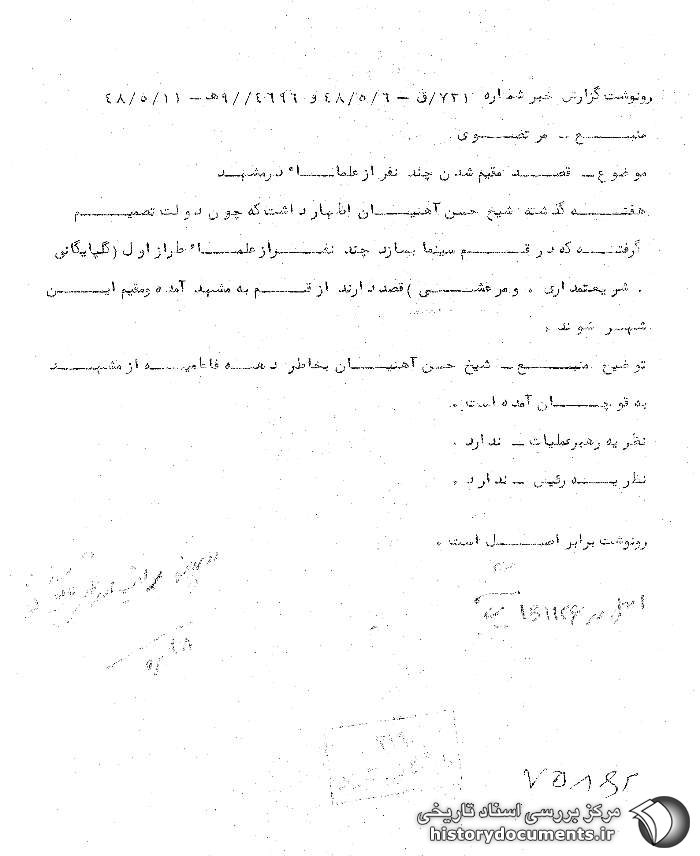 رونوشت گزارش خبر شماره ۷۲۱/ق – ۴۸/۵/۶ و ۹//۴۶۹۶ه‍ – ۴۸/۵/۱۱
منبع – مرتضوی
موضوع – قصد مقیم شدن چند نفر از علماء در مشهد
هفته گذشته شیخ حسن آهنیان اظهار داشت که چون دولت تصمیم
گرفته که در قم سینما بسازد چند نفر از علماء طراز اول (گلپایگانی
. شریعتمداری . و مرعشی ) قصد دارند از قم به مشهد آمده و مقیم این
شهر شوند .
توضیح منبع – شیخ حسن آهنیان بخاطر دهه فاطمیه از مشهد
به قوچان آمده است .
نظریه رهبر عملیات – ندارد .
نظریه رئیس – ندارد .
رونوشت برابر اصل است .
اصل در
۲۱۹
مرکز بررسی اسناد تاریخی
historydocuments.ir